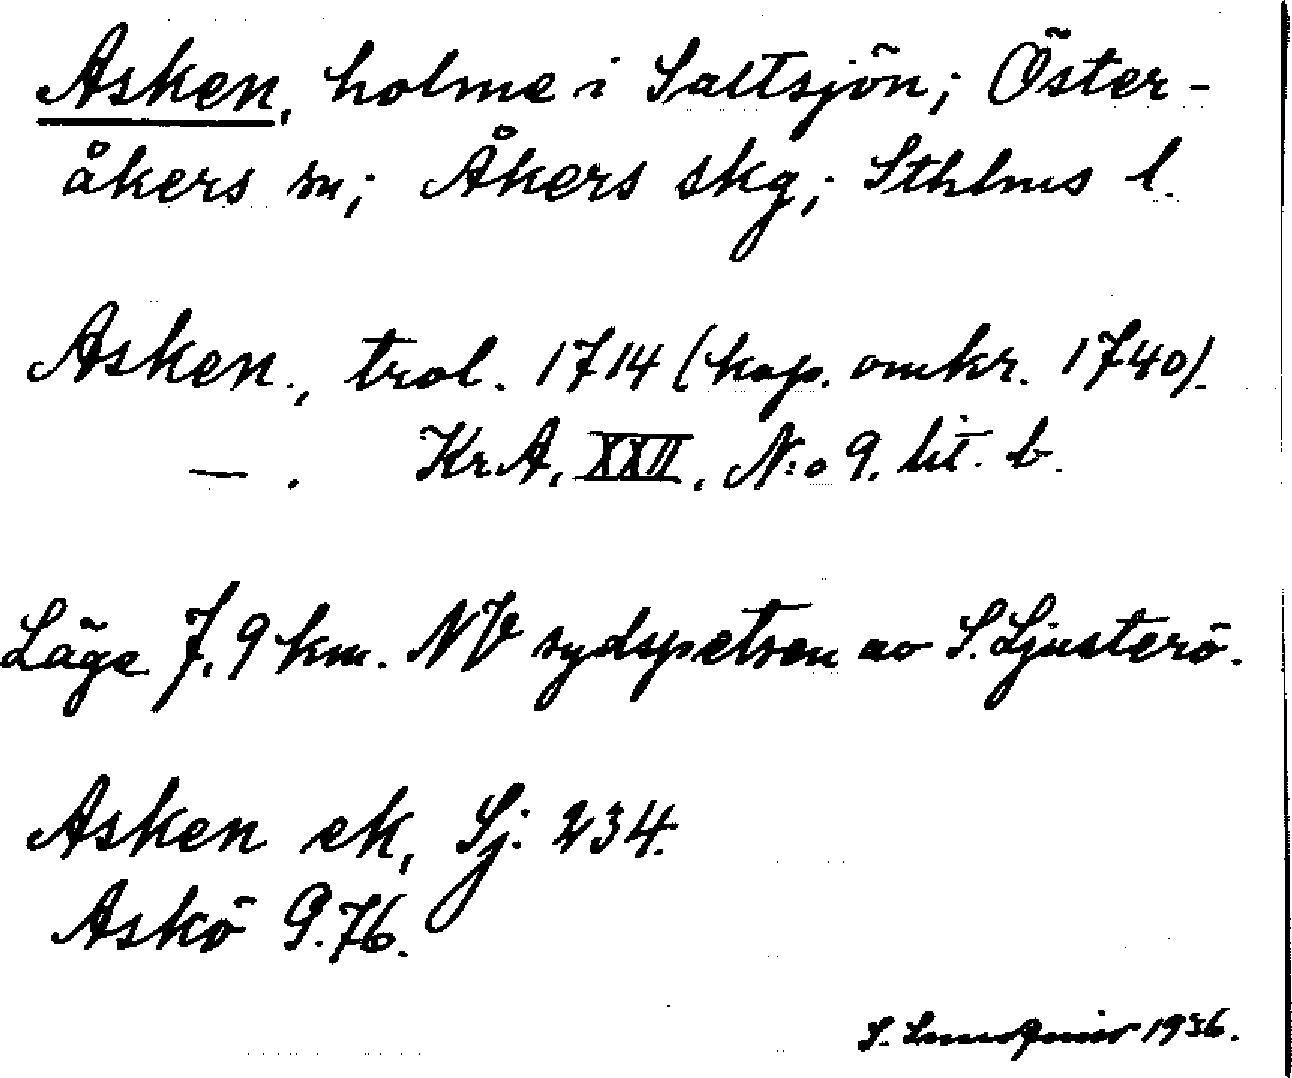 Asken, holme i Saltsjön; Öster-
åkers sn; Åkers skg; Sthlms l.
Asken., trol. 1714 (kop. omkr. 1740).
— . Kr.A. XXII. N:o 9. lit. b.
Läge 7,9 km. NV sydspetsen av S. Ljusterö.
Asken ek, Sj: 234.
Askö 9.76.
S. 1936.